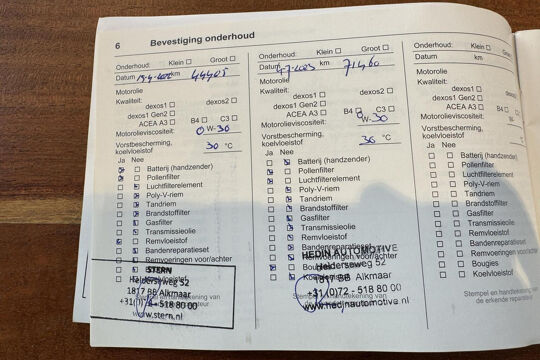 6 Bevestiging onderhoud
Onderhoud: Klein Groot
Datum km 44405
Motorolie
Kwaliteit:
dexos1 dexos2
dexos1 Gen2
ACEA A3 B4 C3
Motorolieviscositeit: 0W-30
Vorstbescherming,
koelvloeistof 30 °C
Ja Nee
Batterij (handzender)
Pollenfilter
Luchtfilterelement
Poly-V-riem
Tandriem
Brandstoffilter
Gasfilter
Transmissieolie
Remvloeistof
Bandenreparatieset
Remvoeringen voor/achter
STERN
Helderseweg 52
1817 BB Alkmaar
+31(0)72-518 80 00
www.stern.nl
Onderhoud: Klein Groot
Datum 4-7-2023 km 71460
Motorolie
Kwaliteit:
dexos1 dexos2
dexos1 Gen2
ACEA A3 B4 C3
Motorolieviscositeit: 0W-30
Vorstbescherming,
koelvloeistof 36 °C
Ja Nee
Batterij (handzender)
Pollenfilter
Luchtfilterelement
Poly-V-riem
Tandriem
Brandstoffilter
Gasfilter
Transmissieolie
Remvloeistof
Bandenreparatieset
Remvoeringen voor/achter
HEDIN AUTOMOTIVE
Helderseweg 52
1817 BB Alkmaar
+31(0)72-518 80 00
www.hedinautomotive.nl
Onderhoud: Klein Groot
Datum km
Motorolie
Kwaliteit:
dexos1 dexos2
dexos1 Gen2
ACEA A3 B4 C3
Motorolieviscositeit:
Vorstbescherming,
koelvloeistof °C
Ja Nee
Batterij (handzender)
Pollenfilter
Luchtfilterelement
Poly-V-riem
Tandriem
Brandstoffilter
Gasfilter
Transmissieolie
Remvloeistof
Bandenreparatieset
Remvoeringen voor/achter
Bougies
Koelvloeistof
Stempel en handtekening
de erkende